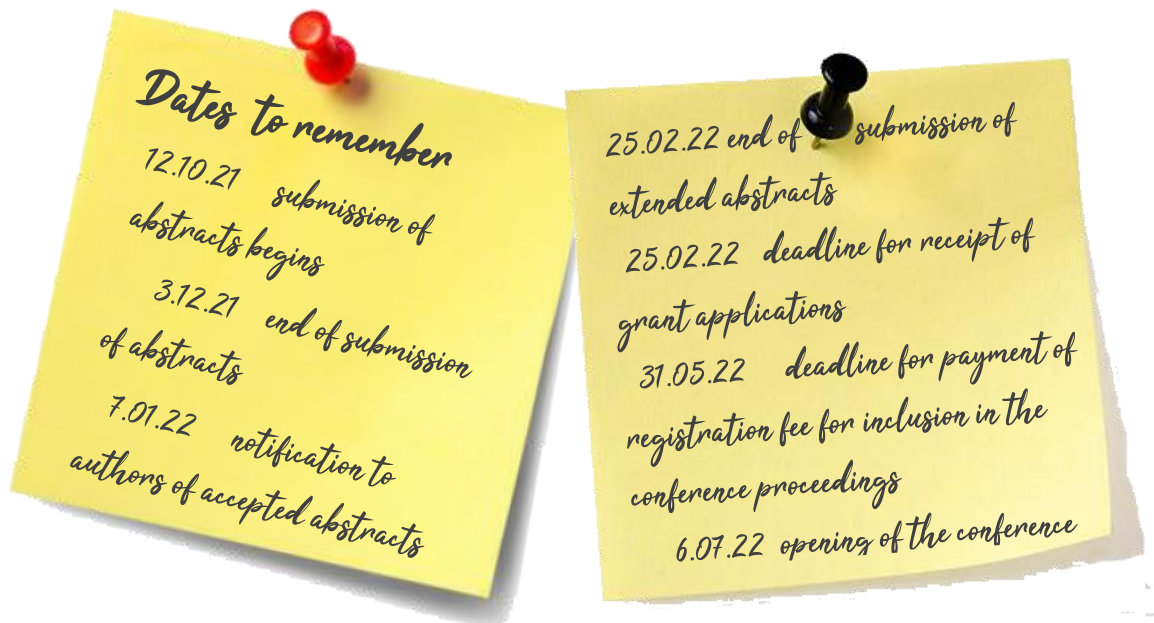 Dates to remember
12.10.21 submission of
abstracts begins
3.12.21 end of submission
of abstracts
7.01.22 notification to
authors of accepted abstracts
25.02.22 end of submission of
extended abstracts
25.02.22 deadline for receipt of
grant applications
31.05.22 deadline for payment of
registration fee for inclusion in the
conference proceedings
6.07.22 opening of the conference